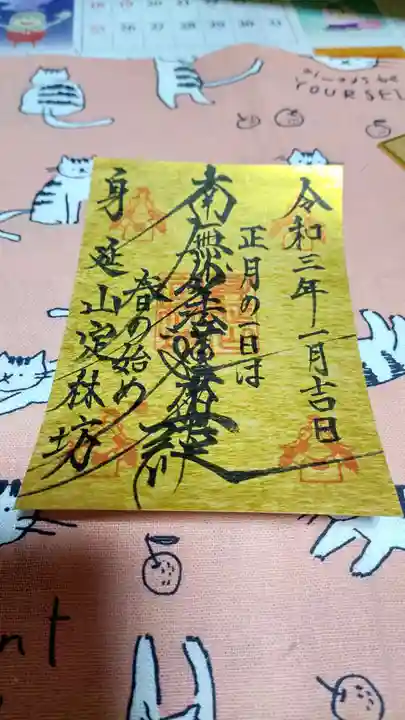 令和三年一月吉日
正月の一日は
南無妙法蓮華経
春の始め
身延山定林坊
YOURSEL